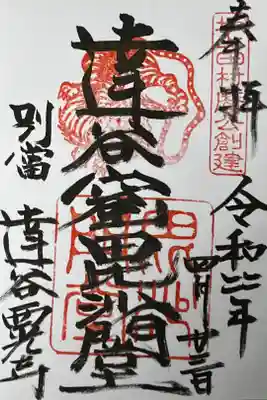 奉拝
田村麿公創建
令和三年
四月廿三日
達谷窟毘沙門堂
別當
達谷西光寺